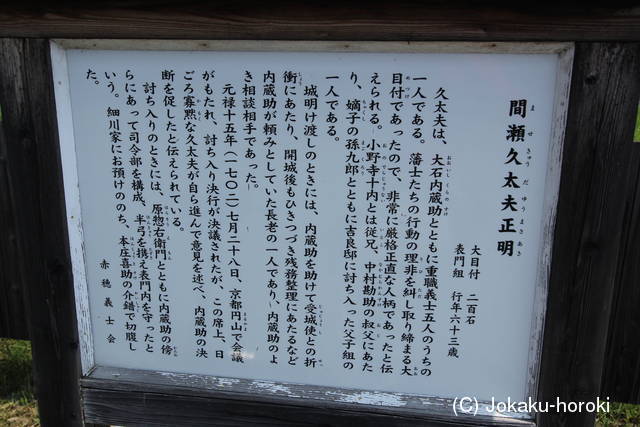 間瀬久太夫正明
ませきゅうだゆうまさあき
大目付　二百石
表門組　行年六十三歳
久太夫は、大石内蔵助とともに重職義士五人のうちの
一人である。藩士たちの行動の理非を糾し取り締まる大
目付であったので、非常に厳格正直な人柄であったと伝
えられる。小野寺十内とは従兄、中村勘助の叔父にあた
り、嫡子の孫九郎とともに吉良邸に討ち入った父子組の
一人である。
城明け渡しのときには、内蔵助を助けて受城使との折
衝にあたり、開城後もひきつづき残務整理にあたるなど
内蔵助が頼みとしていた長老の一人であり、内蔵助のよ
き相談相手であった。
元禄十五年（一七〇二）七月二十八日、京都円山で会議
がもたれ、討ち入り決行が決議されたが、この席上、日
ごろ寡黙な久太夫が自ら進んで意見を述べ、内蔵助の決
断を促したと伝えられている。
討ち入りのときには、原惣右衛門とともに内蔵助の傍
らにあって司令部を構成、半弓を携え表門内を守ったと
いう。細川家にお預けののち、本庄喜助の介錯で切腹し
た。
赤穂義士会
(C) Jokaku-horoki